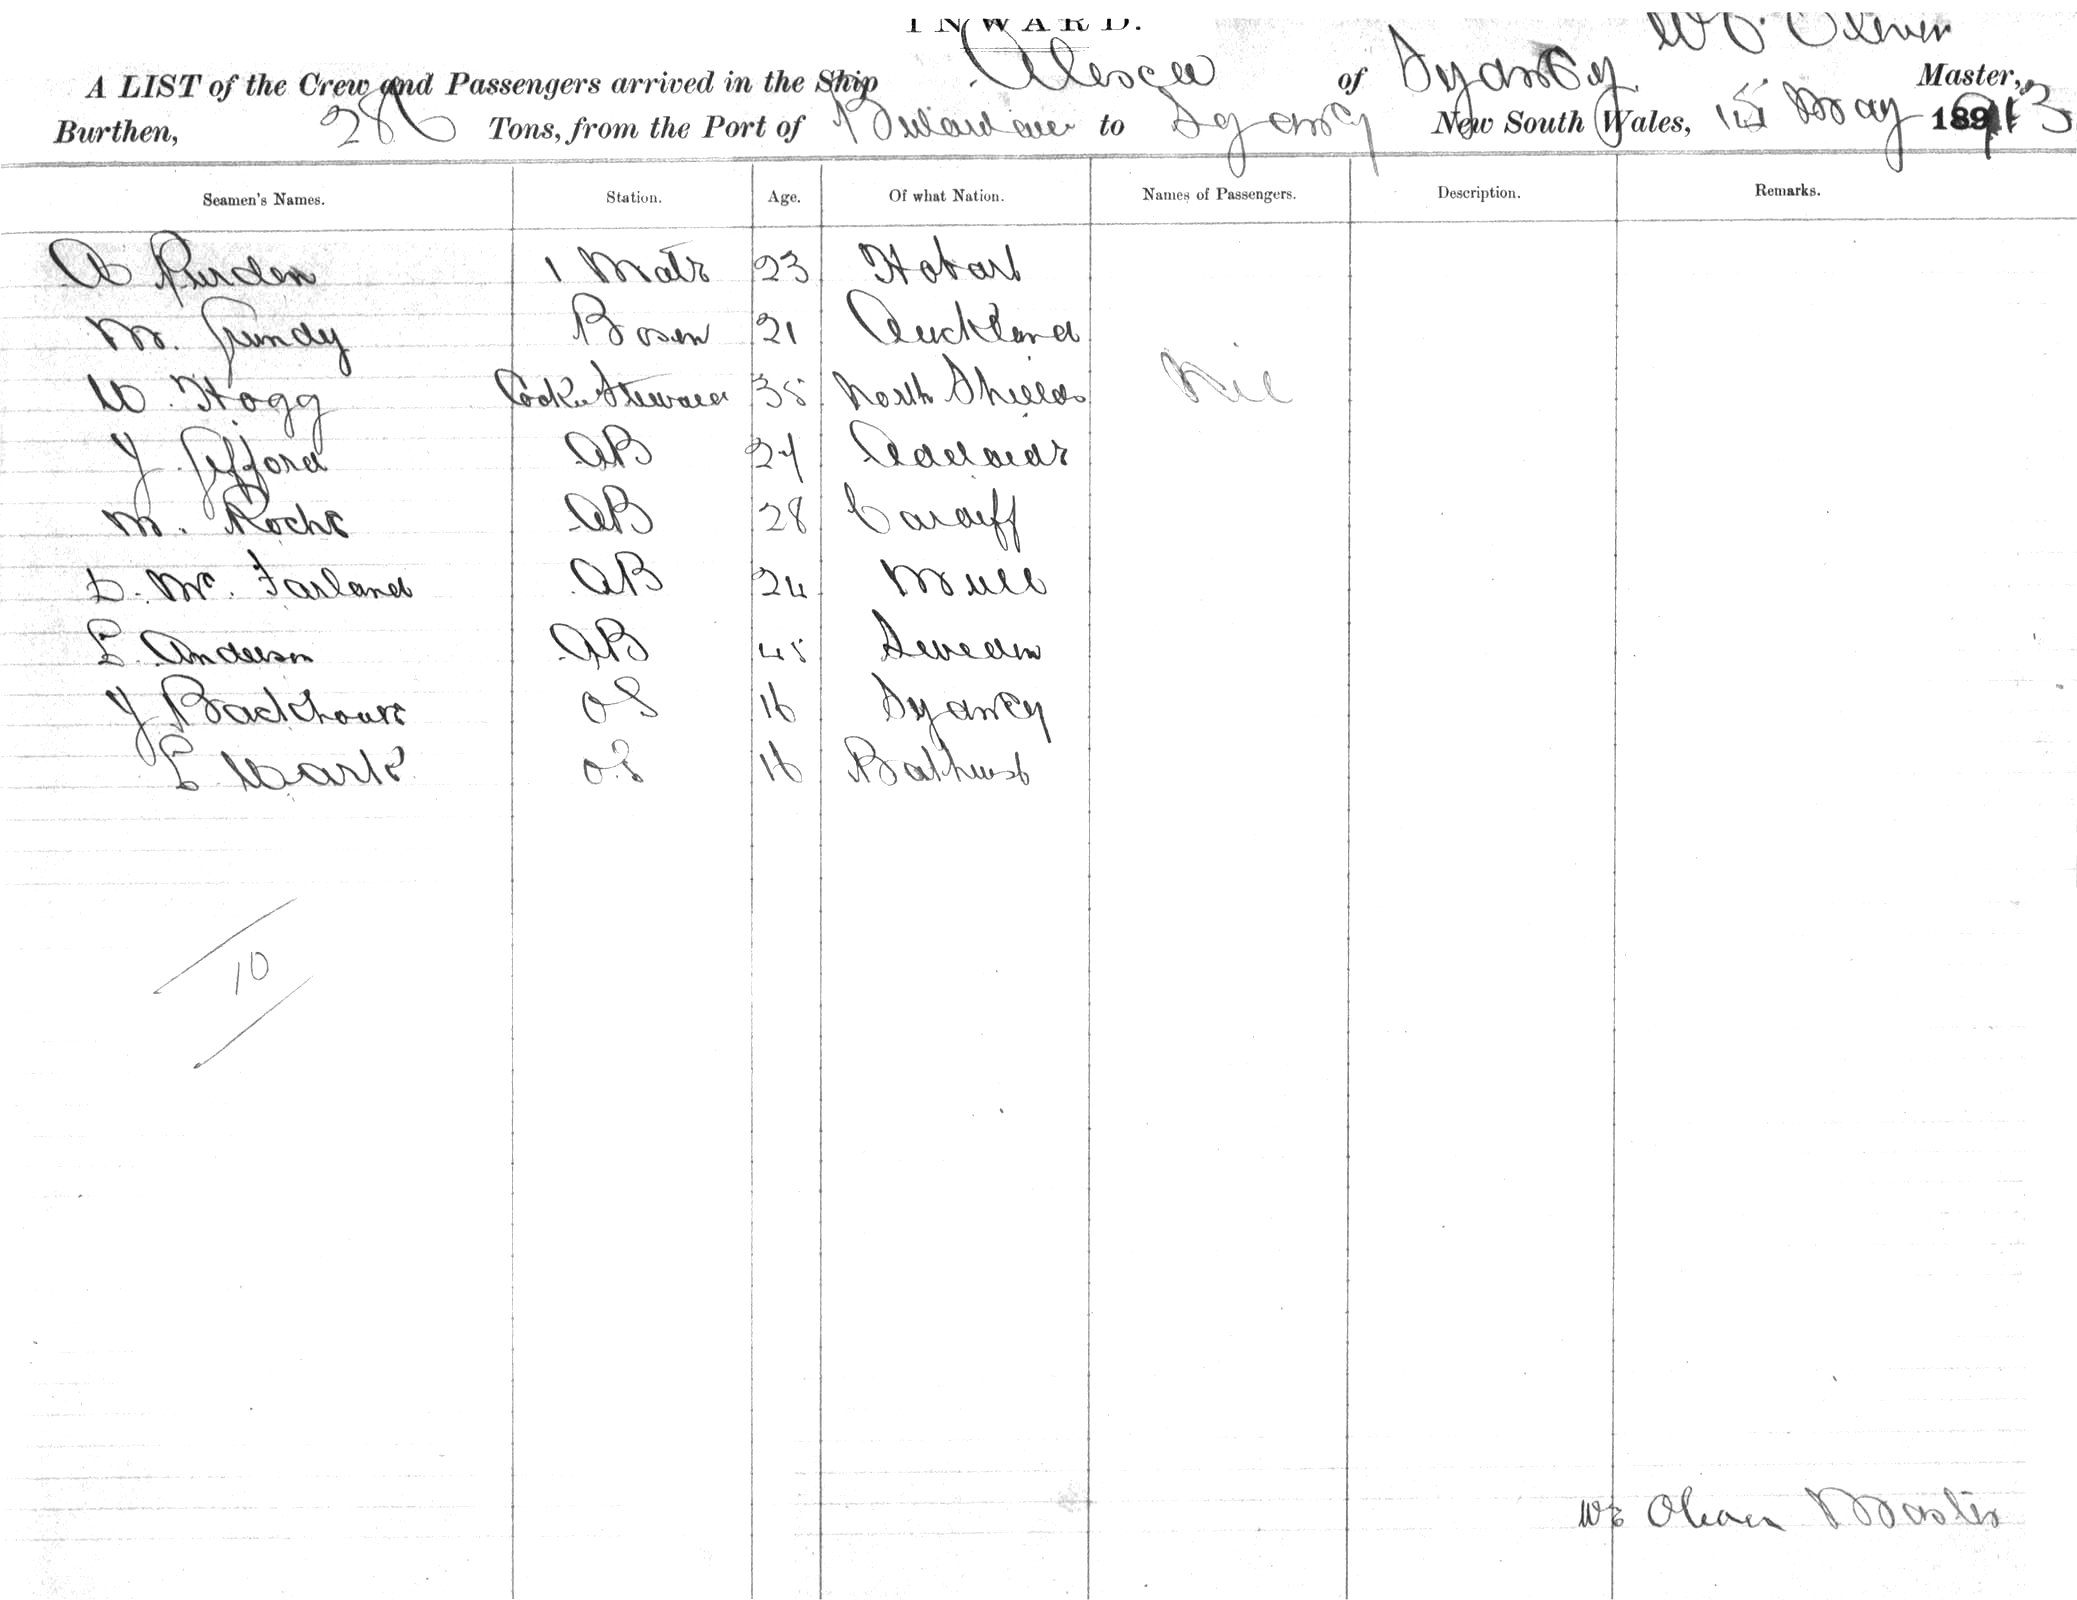 INWARD.
W E. Oliver
A LIST of the Crew and Passengers arrived in the Ship Alexa of Sydney Master,
Burthen, 286 Tons, from the Port of to Sydney New South Wales, 15 May 1893
Seamen's Names. Station. Age. Of what Nation. Names of Passengers. Description. Remarks.
A Purden 1 Mate 23 Hobart
M. Gundy Bosen 21 Auckland
W. Hogg Cook & Steward 38 North Shields Nil
J Gifford AB 24 Adelaide
M. Roche AB 28 Cardiff
D. Mc. Farland AB 24 Mull
L. Anderson AB 45 Sweden
J Backhouse OS 16 Sydney
L Wark OS 16 Bathurst
10
WE Oliver Master